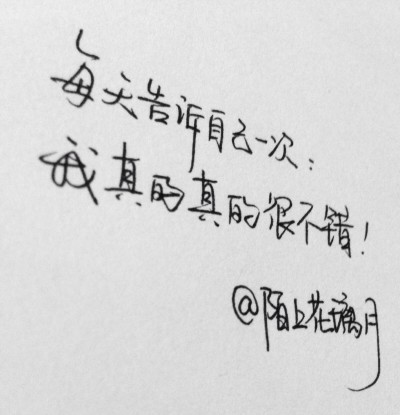 每天告诉自己一次:
我真的真的很不错!
@陌上花璃月